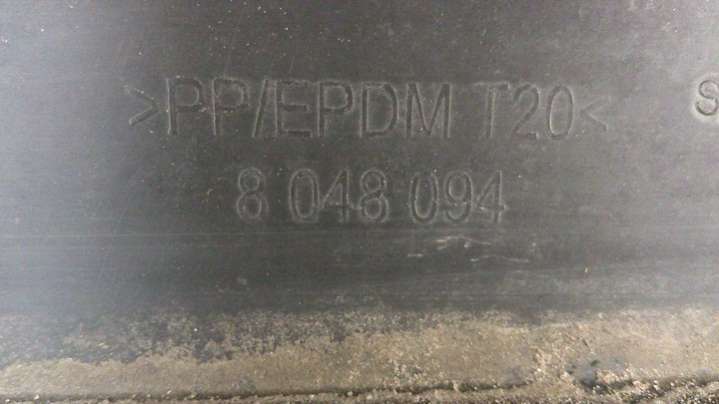 >PP/EPDM T20< S
8 048 094